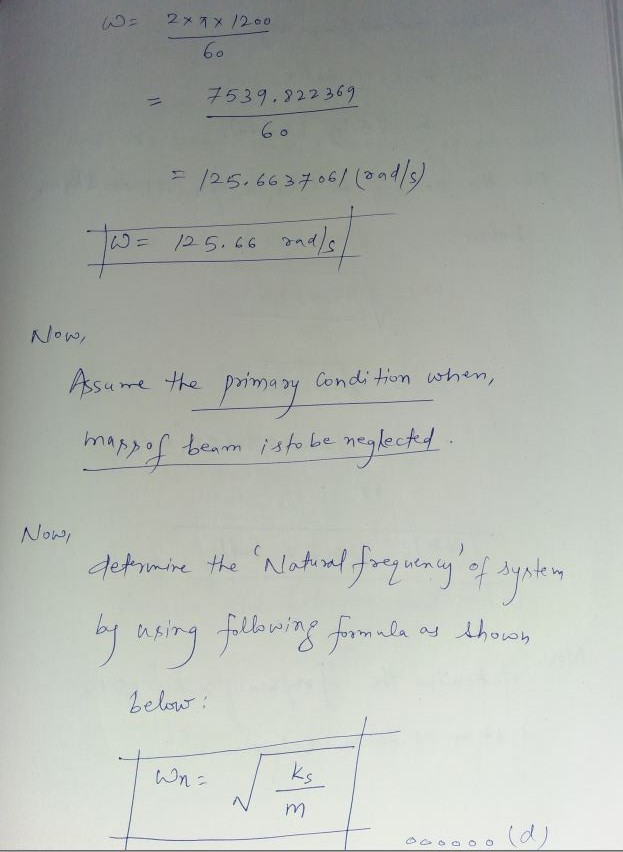 ω = 2 × π × 1200
60
= 7539.822369
60
= 125.6637061 (rad/s)
ω = 125.66 rad/s
Now,
Assume the primary condition when,
mass of beam is to be neglected.
Now,
determine the 'Natural frequency' of system
by using following formula as shown
below:
ωn = √ ks
m
...... (d)